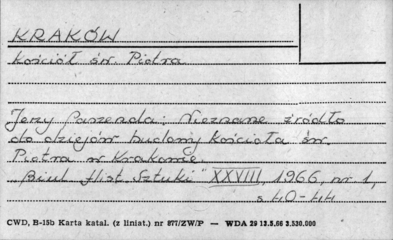 KRAKÓW
Kościół św. Piotra
Jerzy Paszenda: Nieznane źródło
do dziejów budowy kościoła św.
Piotra w Krakowie.
"Biul. Hist. Sztuki" XXVIII, 1966, nr 1,
s 40-44
CWD, B-15b Karta katal. (z liniat.) nr 877/ZW/P — WDA 29 13.5.66 3.530.000